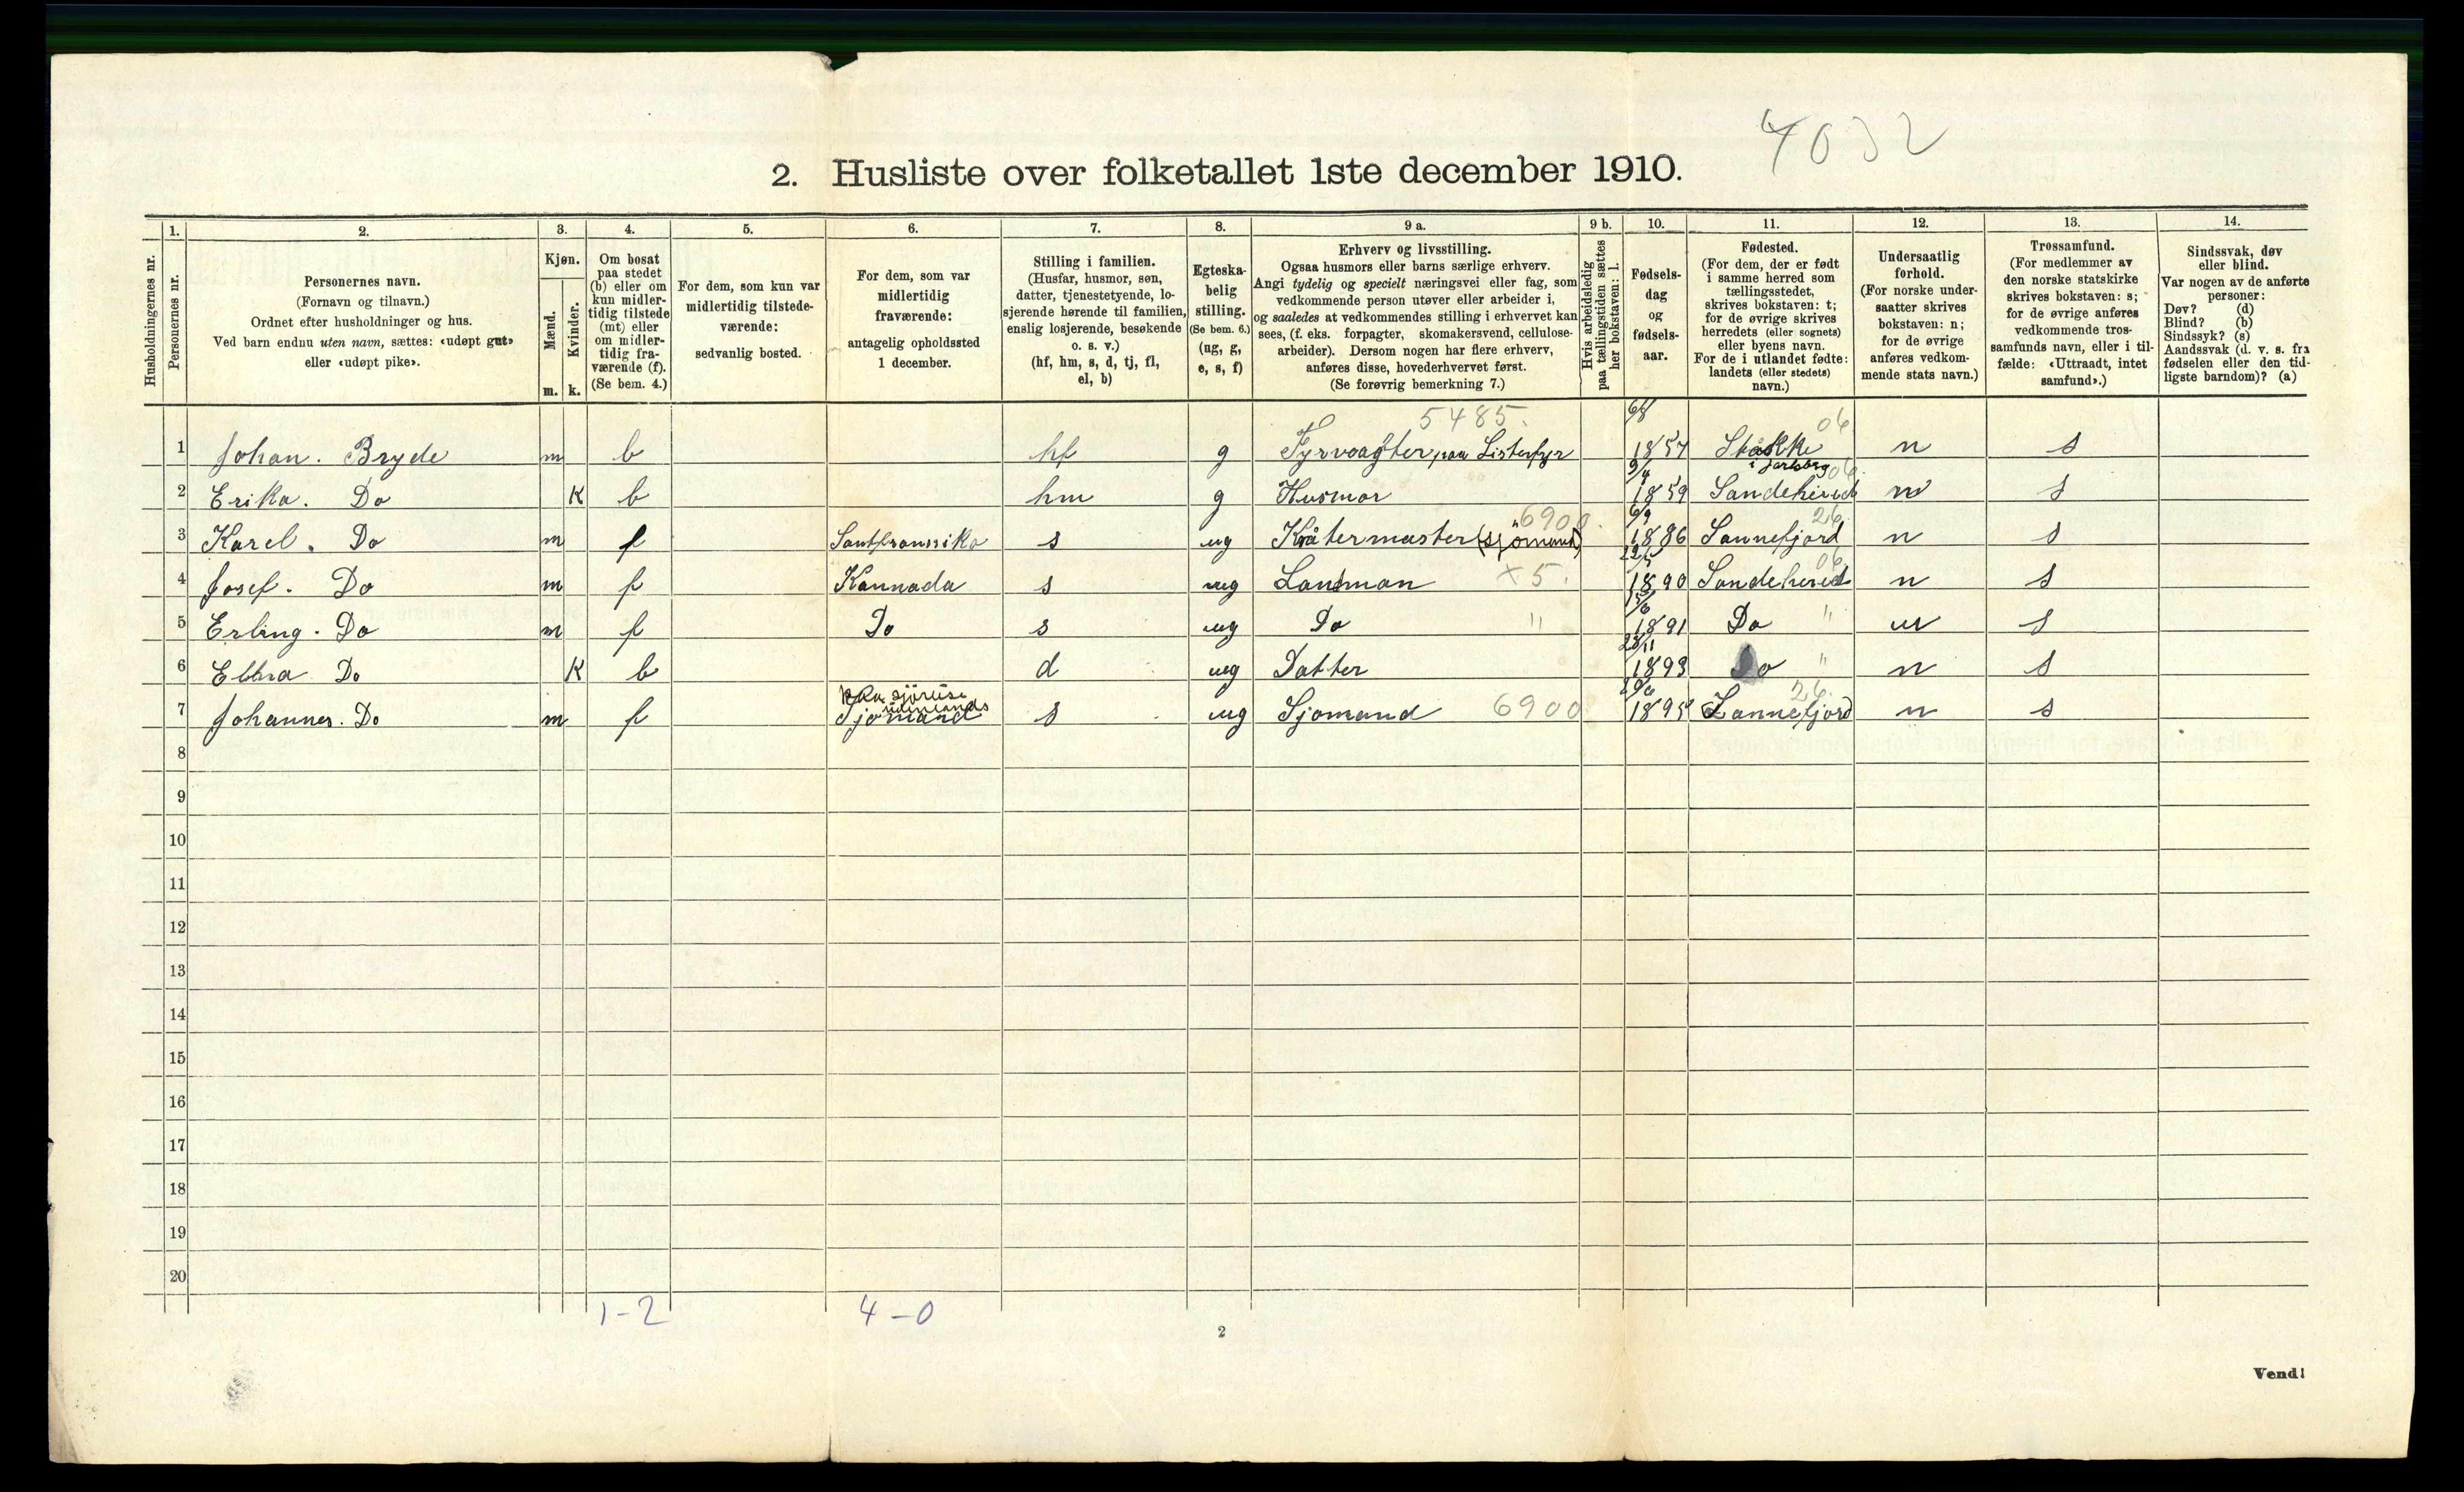 4032
2. Husliste over folketallet 1ste december 1910.
Husholdningernes nr.
1.
Personernes nr.
2.
Personernes navn.
(Fornavn og tilnavn.)
Ordnet efter husholdninger og hus.
Ved barn endnu uten navn, sættes: «udøpt gut»
eller «udøpt pike».
3.
Kjøn.
Mænd.
Kvinder.
m. k.
4.
Om bosat
paa stedet
(b) eller om
kun midler-
tidig tilstede
(mt) eller
om midler-
tidig fra-
værende (f).
(Se bem. 4.)
5.
For dem, som kun var
midlertidig tilstede-
værende:
sedvanlig bosted.
6.
For dem, som var
midlertidig
fraværende:
antagelig opholdssted
1 december.
7.
Stilling i familien.
(Husfar, husmor, søn,
datter, tjenestetyende, lo-
sjerende hørende til familien,
enslig losjerende, besøkende
o. s. v.)
(hf, hm, s, d, tj, fl,
el, b)
8.
Egteska-
belig
stilling.
(Se bem. 6.)
(ug, g,
e, s, f)
9 a.
Erhverv og livsstilling.
Ogsaa husmors eller barns særlige erhverv.
Angi tydelig og specielt næringsvei eller fag, som
vedkommende person utøver eller arbeider i,
og saaledes at vedkommendes stilling i erhvervet kan
sees, (f. eks. forpagter, skomakersvend, cellulose-
arbeider). Dersom nogen har flere erhverv,
anføres disse, hovederhvervet først.
(Se forøvrig bemerkning 7.)
9 b.
Hvis arbeidsledig
paa tællingstiden sættes
her bokstaven: l.
10.
Fødsels-
dag
og
fødsels-
aar.
11.
Fødested.
(For dem, der er født
i samme herred som
tællingsstedet,
skrives bokstaven: t;
for de øvrige skrives
herredets (eller sognets)
eller byens navn.
For de i utlandet fødte:
landets (eller stedets)
navn.)
12.
Undersaatlig
forhold.
(For norske under-
saatter skrives
bokstaven: n;
for de øvrige
anføres vedkom-
mende stats navn.)
13.
Trossamfund.
(For medlemmer av
den norske statskirke
skrives bokstaven: s;
for de øvrige anføres
vedkommende tros-
samfunds navn, eller i til-
fælde: «Uttraadt, intet
samfund».)
14.
Sindssvak, døv
eller blind.
Var nogen av de anførte
personer:
Døv? (d)
Blind? (b)
Sindssyk? (s)
Aandssvak (d. v. s. fra
fødselen eller den tid-
ligste barndom)? (a)
5485. 06
1 Johan. Bryde m b hf g Fyrvoagter paa Listerfyr 1857 Skåkke n s
i Jarlsberg 06
2 Erika. Do K b hm g Husmor 9/4 1859 Sandeherred n s
6900. 26
3 Karel. Do m f Santfranssiko s ug Kvåtermaster (sjømand) 6/9 1886 Sannefjord n s
06
4 Josef. Do m f Kannada s ug Landman x 5. 22/5 1890 Sandeherred n s
5 Erling. Do m f Do s ug Do " 15/6 1891 Do " n s
6 Ebba Do K b d ug Datter 28/11 1893 Do " n s
paa sjøreise
udenlands 26.
7 Johannes. Do m f Sjømand s ug Sjomand 6900 1895 Sannefjord n s
8
9
10
11
12
13
14
15
16
17
18
19
20
1-2 4-0
2
Vend!